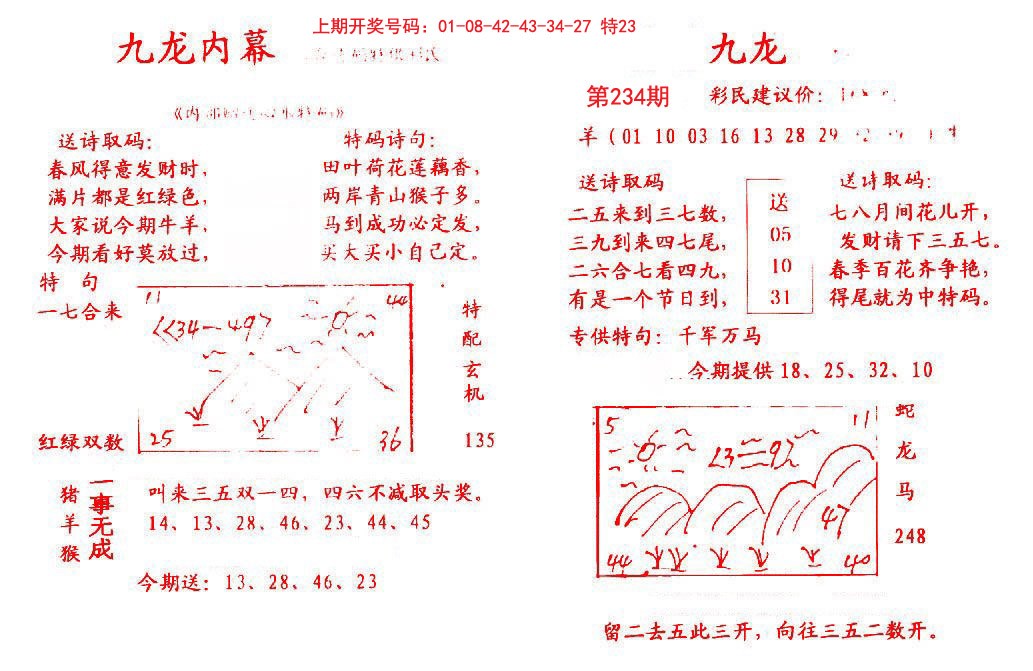 上期开奖号码：01-08-42-43-34-27 特23
九龙内幕
送诗取码：
春风得意发财时，
满片都是红绿色，
大家说今期牛羊，
今期看好莫放过，
特码诗句：
田叶荷花莲藕香，
两岸青山猴子多。
马到成功必定发，
买大买小自己定。
特 句
一七合来
红绿双数
11
44
25
36
特配玄机
135
猪羊猴
一事无成
叫来三五双一四，四六不减取头奖。
14、13、28、46、23、44、45
今期送：13、28、46、23
九龙
第234期
彩民建议价：
羊（01 10 03 16 13 28 29
送诗取码
二五来到三七数，
三九到来四七尾，
二六合七看四九，
有是一个节日到，
送
05
10
31
送诗取码：
七八月间花儿开，
发财请下三五七。
春季百花齐争艳，
得尾就为中特码。
专供特句：千军万马
今期提供18、25、32、10
5
11
47
44
40
蛇
龙
马
248
留二去五此三开，向往三五二数开。